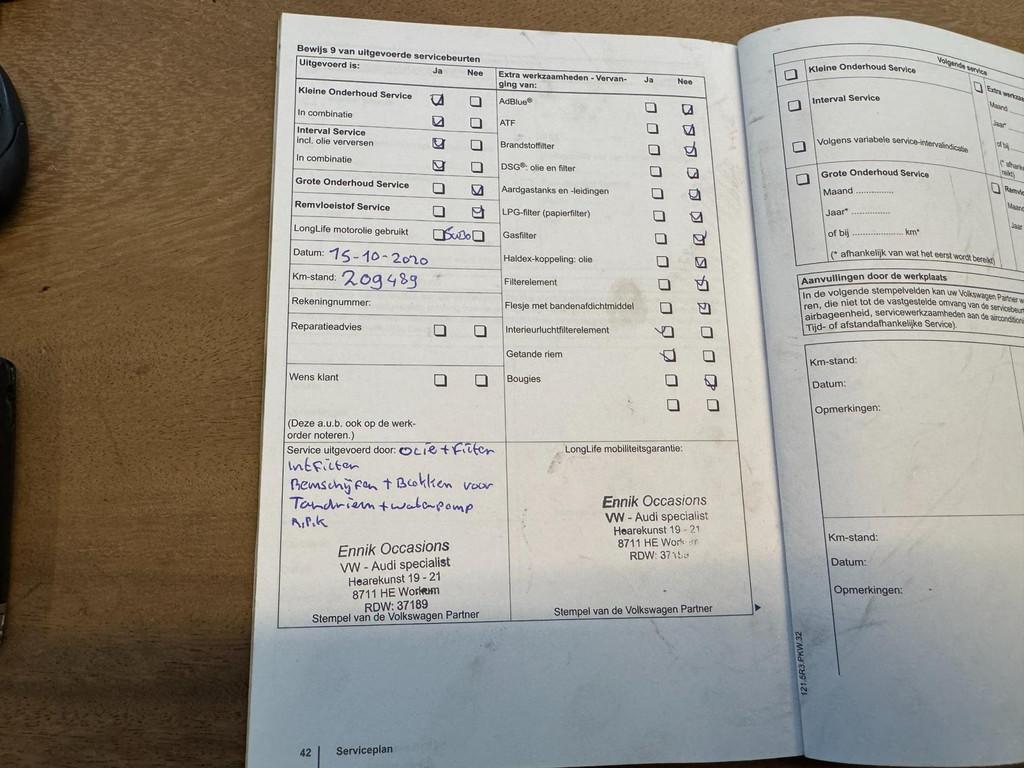 Bewijs 9 van uitgevoerde servicebeurten
Uitgevoerd is: Ja Nee
Kleine Onderhoud Service
In combinatie
Interval Service
incl. olie verversen
In combinatie
Grote Onderhoud Service
Remvloeistof Service
LongLife motorolie gebruikt 5W30
Datum: 15-10-2020
Km-stand: 209489
Rekeningnummer:
Reparatieadvies
Wens klant
(Deze a.u.b. ook op de werk-
order noteren.)
Service uitgevoerd door: olie + filter
Intfilter
Remschijfen + Blokken voor
Tandriem + waterpomp
A.P.K
Ennik Occasions
VW - Audi specialist
Hearekunst 19 - 21
8711 HE Workum
RDW: 37189
Stempel van de Volkswagen Partner
Extra werkzaamheden - Vervan-
ging van: Ja Nee
AdBlue®
ATF
Brandstoffilter
DSG®: olie en filter
Aardgastanks en -leidingen
LPG-filter (papierfilter)
Gasfilter
Haldex-koppeling: olie
Filterelement
Flesje met bandenafdichtmiddel
Interieurluchtfilterelement
Getande riem
Bougies
LongLife mobiliteitsgarantie:
Ennik Occasions
VW - Audi specialist
Hearekunst 19 - 21
8711 HE
RDW: 37189
Stempel van de Volkswagen Partner
42 Serviceplan
Volgende service
Kleine Onderhoud Service
Interval Service
Volgens variabele service-intervalindicatie
Grote Onderhoud Service
Maand ..............
Jaar* ..............
of bij .................. km*
(* afhankelijk van wat het eerst wordt bereikt)
Extra
Maand
Jaar*
of bij
Maand
Jaar
Aanvullingen door de werkplaats
In de volgende stempelvelden kan uw Volkswagen Partner
ren, die niet tot de vastgestelde omvang van de
airbageenheid, servicewerkzaamheden aan de
Tijd- of afstandafhankelijke Service).
Km-stand:
Datum:
Opmerkingen:
Km-stand:
Datum:
Opmerkingen:
121.5R3.PKW.32